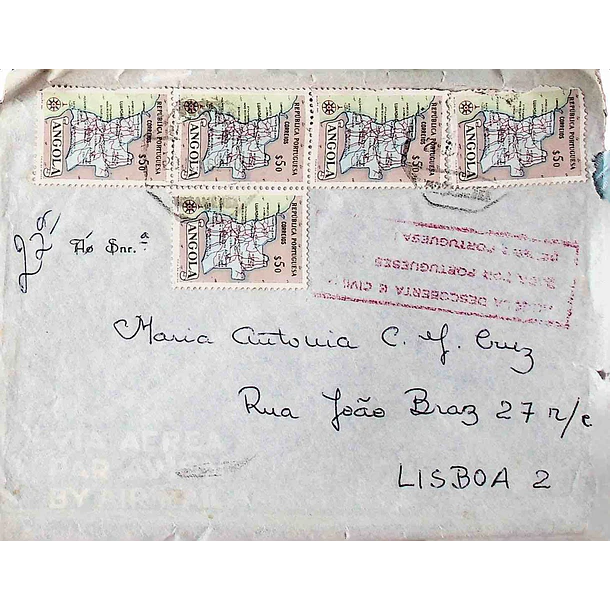 REPÚBLICA PORTUGUESA
CORREIOS
$50
ANGOLA
REPÚBLICA PORTUGUESA
CORREIOS
$50
ANGOLA
REPÚBLICA PORTUGUESA
CORREIOS
$50
ANGOLA
REPÚBLICA PORTUGUESA
CORREIOS
$50
ANGOLA
REPÚBLICA PORTUGUESA
CORREIOS
$50
ANGOLA
DESCOBERTA E
POR PORTUGUESES
PORTUGUESA
Ao Snr.ª
Maria Antonia C. G. Cruz
Rua João Braz 27 r/c
LISBOA 2
VIA AEREA
PAR AVION
BY AIR MAIL